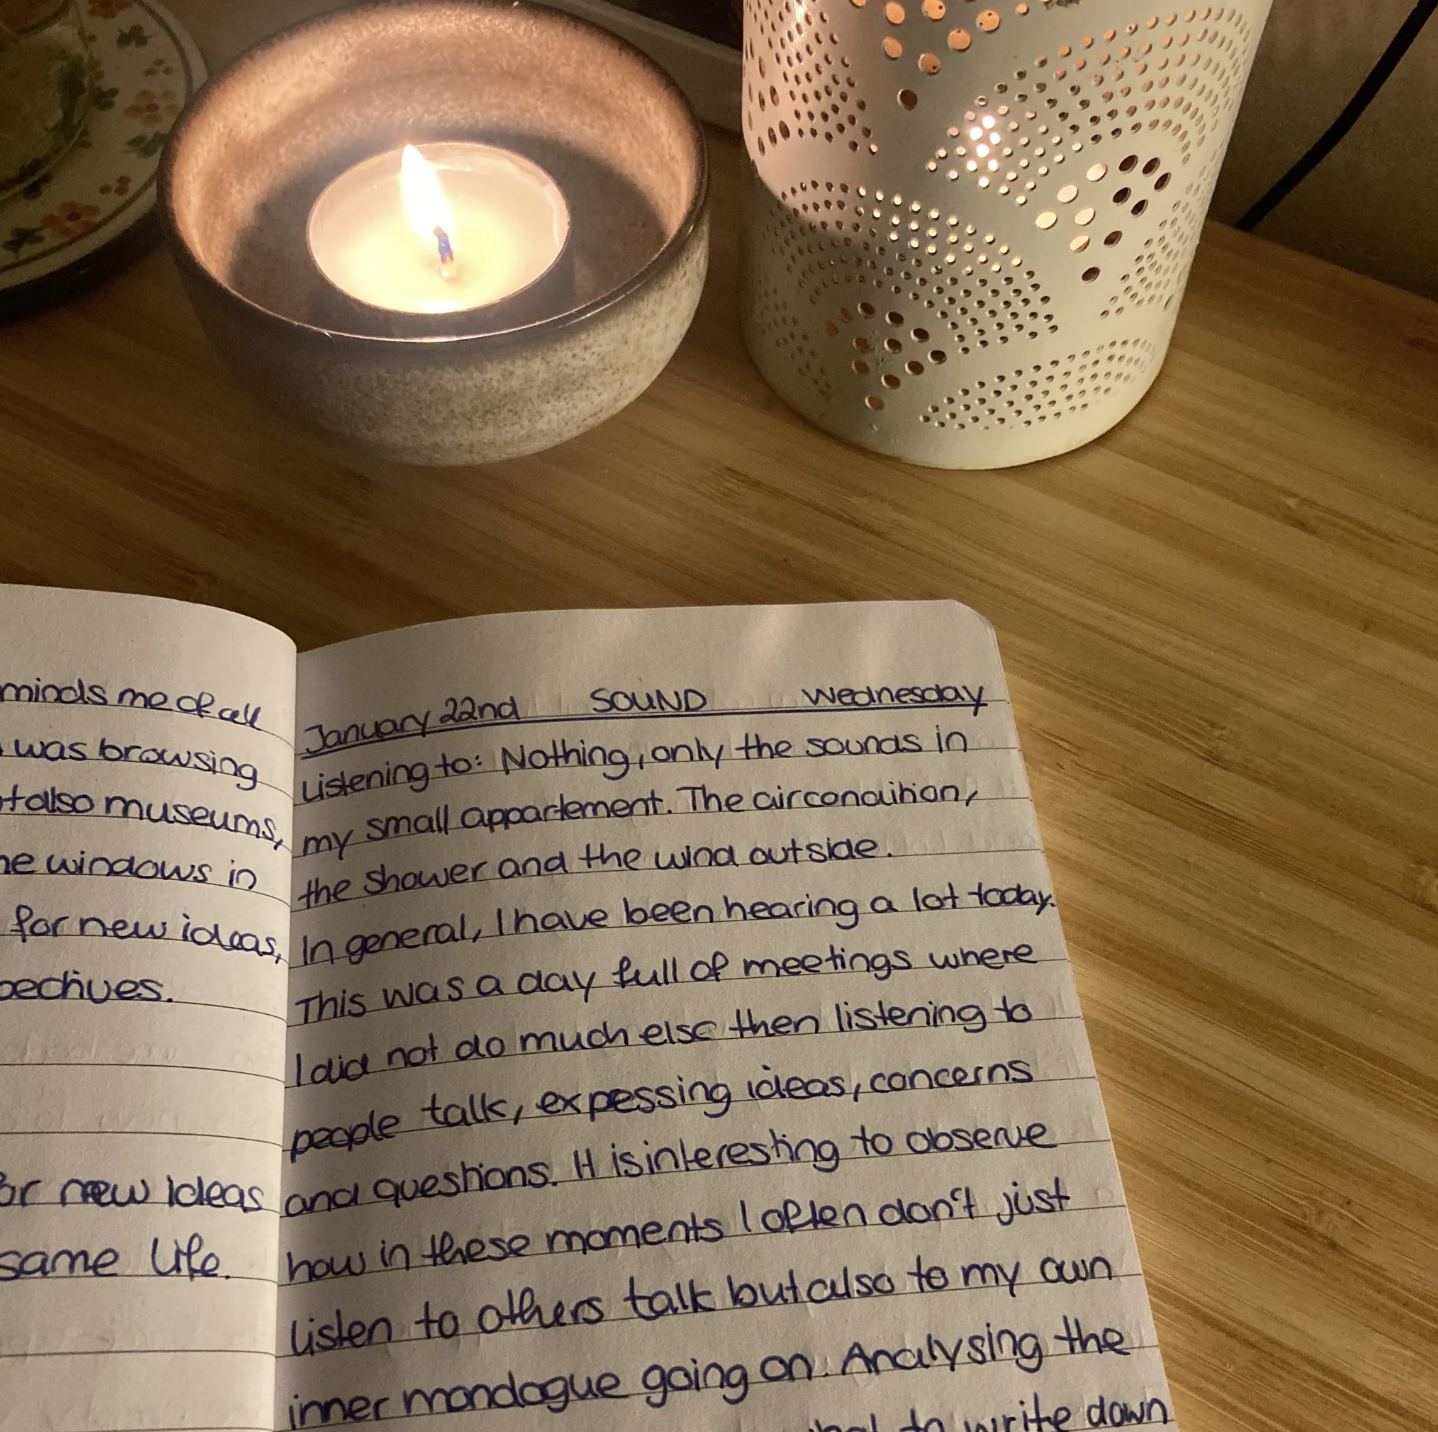 minds me of all
was browsing
also museums,
windows in
for new ideas,
new ideas
same life.
January 22nd SOUND Wednesday
Listening to: Nothing, only the sounds in
my small appartement. The aircondition,
the shower and the wind outside.
In general, I have been hearing a lot today.
This was a day full of meetings where
I did not do much else then listening to
people talk, expessing ideas, concerns
and questions. It is interesting to observe
how in these moments I often don't just
listen to others talk but also to my own
inner mondogue going on. Analysing the
to write down